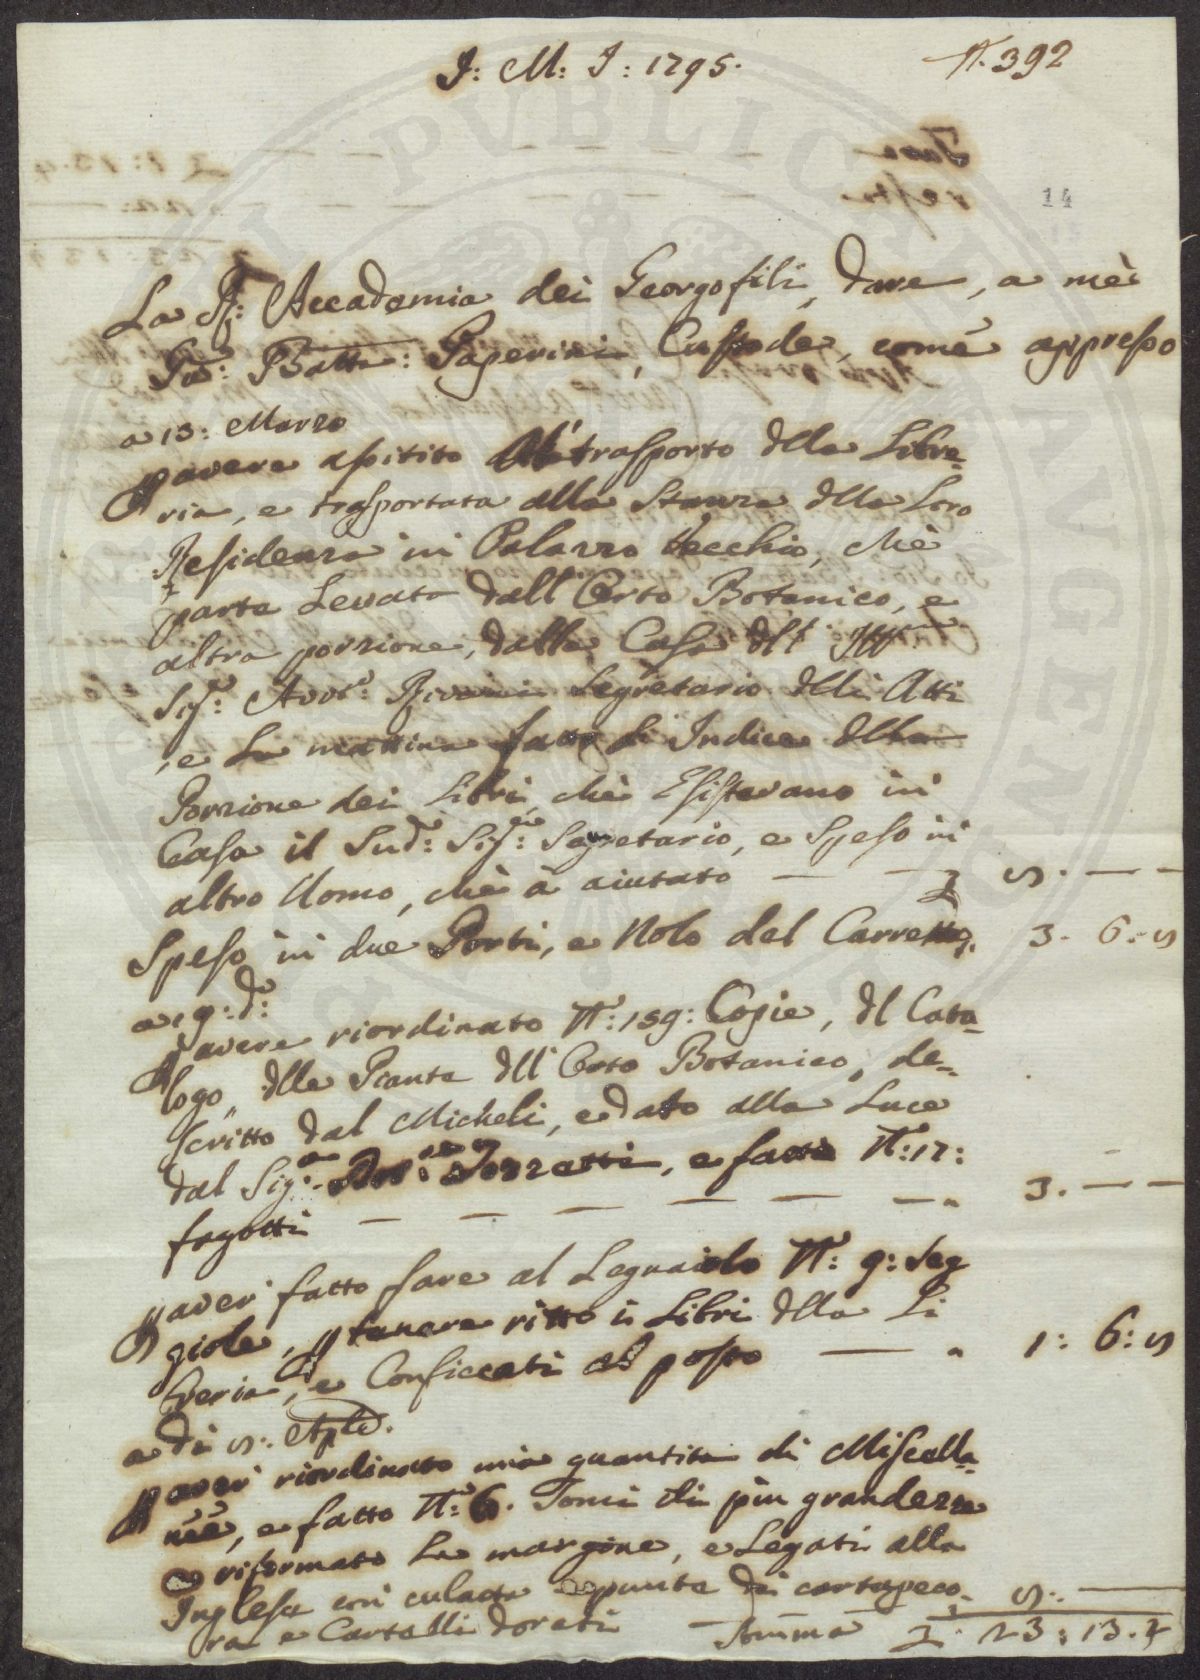 J: M: J: 1795.
N. 392
14
La R: Accademia dei Georgofili, dare, a mè
Gio: Batta: Paperini, Custode, come appresso
a 13: Marzo
p avere assitito al trasporto della Libre-
ria, e trasportata alla Stanza della Loro
Residenza in Palazzo Vecchio, chè
parte Levata dall'Orto Botanico, e
altra porzione, dalla Casa dell'
Sig: Avv: Segretario delli Atti
, e La mattina fatto Indice della
Porzione dei Libri, chè Esistevano in
Casa il Sud: Sig: Segretario, e Speso in
altro Uomo, chè à aiutato — — 5. — —
Speso in due Porti, e Nolo del Carretto. 3. 6: 5
a 19: d:
p avere riordinato N: 159: Copie, del Cata-
logo, delle Piante dell'Orto Botanico, de-
scritto dal Micheli, e dato alla Luce
dal Sig: Dot: Tozzetti, e fatti N: 17:
fagotti — — — — — — 3. — —
p aver fatto fare al Legnaiolo N: 9: Seg
giole, p tenere ritto i Libri della Li
breria, e Conficcati al posto — 1: 6: 5
a di 5: Aple.
p aver riordinato una quantita di Miscella-
nee, e fatto N: 6. Tomi di più grandezze
e riformato Le margine, e Legati alla
Inglese con culatta e punte di cartapeco-
ra e Cartelli dorati 5: —
Somma 13: